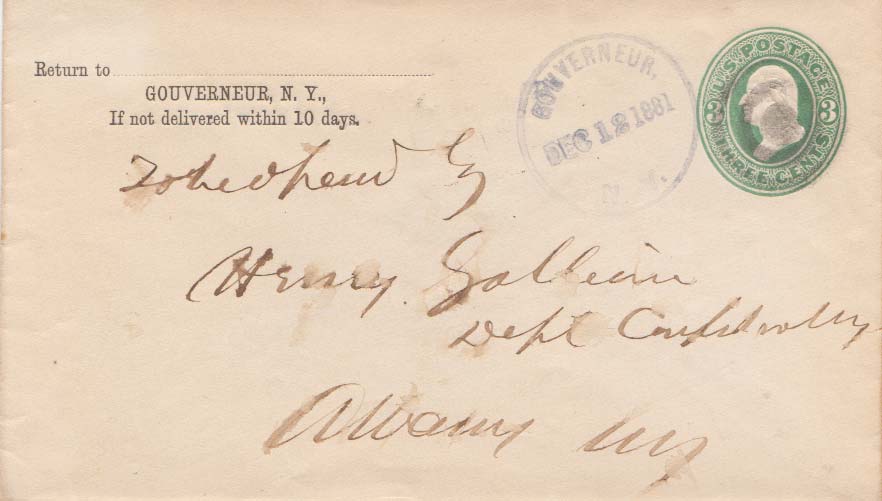 Return to
GOUVERNEUR, N. Y.,
If not delivered within 10 days.
GOUVERNEUR,
DEC 12 1881
N. Y.
U.S. POSTAGE
3 3
THREE CENTS
Henry Gallien
Dept
Albany NY